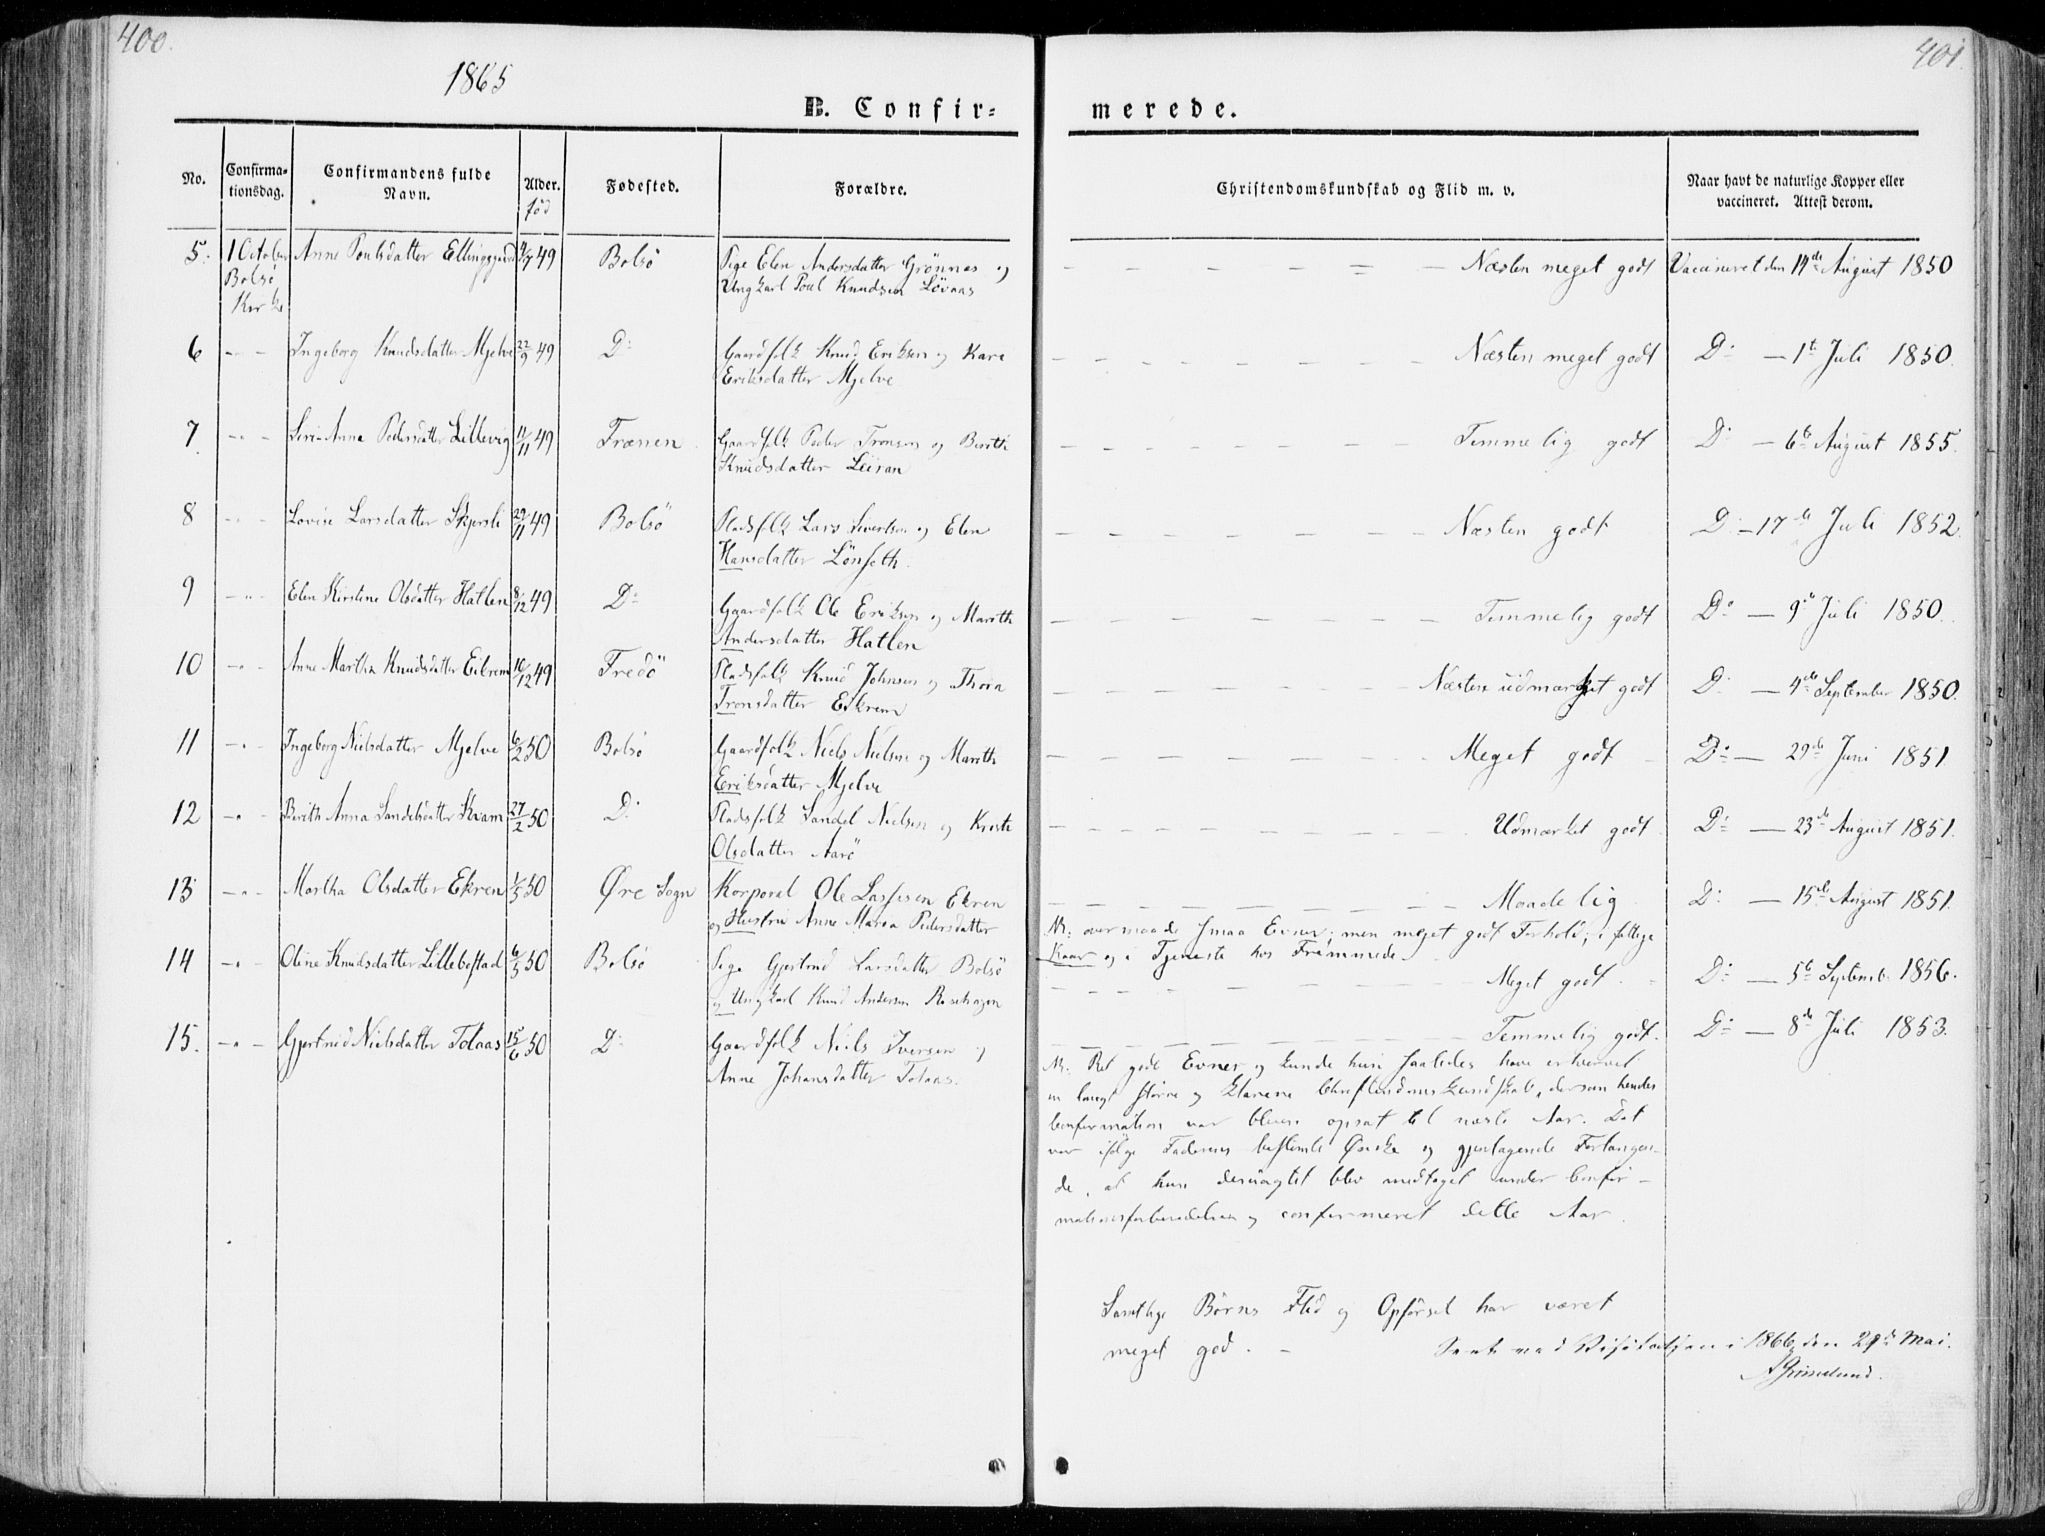 400.
401.
1865
B. Confir=
merede.
No.
Confirma-
tionsdag.
Confirmandens fulde
Navn.
Alder.
fød
Fødested.
Forældre.
Christendomskundskab og Flid m. v.
Naar havt de naturlige Kopper eller
vaccineret. Attest derom.
5. 1 October Anne Poulsdatter Ellingsgaard 49 Bolsö Pige Elen Andersdatter Grönnes og Næsten meget godt Vaccineret den 14de August 1850
Bolsö Ungkarl Poul Knudsen Lövaas
Kirke
6 Ingeborg Knudsdatter Mjelve 22/9 49 D: Gaardfolk Knud Eriksen og Kari Næsten meget godt D: - 1t Juli 1850.
Eriksdatter Mjelve
7 Siri-Anna Pedersdatter Lillevig 11/11 49 Frænen Gaardfolk Peder Tronsen og Berith Temmelig godt D: - 6te August 1855.
Knudsdatter
8 Lovise Larsdatter Skjersli 29/11 49 Bolsö Pladsfolk Lars Sivertsen og Elen Næsten godt D: - 17de Juli 1852.
Hansdatter Lönseth.
9 Elen Kirstine Olsdatter Hatlen 8/12 49 D: Gaardfolk Ole Eriksen og Marith Temmelig godt D: - 9de Juli 1850.
Andersdatter Hatlen
10 Anne Martha Knudsdatter Eikrem 16/12 49 Fredö Pladsfolk Knud Johnsen og Thora Næsten udmærket godt D: - 4de September 1850.
Tronsdatter Eikrem
11 Ingeborg Nielsdatter Mjelve 6/2 50 Bolsö Gaardfolk Niels Nielsen og Marith Meget godt D: - 29de Juni 1851
Eriksdatter Mjelve
12 Berith Anna Sandelsdatter Kvam 27/2 50 D: Pladsfolk Sandel Nielsen og Kristi Udmærket godt D: - 23de August 1851.
Olsdatter Aarö
13 Martha Olsdatter Ekren 1/5 50 Øre Sogn Korporal Ole Lassesen Ekren Maadelig D: - 15de August 1851.
og Hustru Anne Maria Pedersdatter
NB: overmaade smaa Evner; men meget godt Forhold; i fattige
Kaar og i Tjeneste hos Fremmede.
14 Oline Knudsdatter Lillebostad 6/5 50 Bolsö Pige Gjertrud Larsdatter Bolsö Meget godt. D: - 5te Septemb. 1856.
og Ungkarl Knud Andersen
15. Gjertrud Nielsdatter Tolaas 15/6 50 D: Gaardfolk Niels Iversen og Temmelig godt. D: - 8de Juli 1853.
Anne Johansdatter Tolaas.
NB: Ret gode Evner og kunde hun saaledes have erhvervet
en langt större og klarere Christendomskundskab, dersom hendes
Confirmation var bleven opsat til næste Aar. Det
var ifölge Faderens bestemte Ønske og gjentagende Forlangen-
de, at hun desuagtet blev medtaget under Confir-
mationsforberedelsen og confirmeret dette Aar.
Samtlige Börns Flid og Opförsel har været
meget god.
Seet ved Visitatsen i 1866 den 29de Mai.
Grimelund.